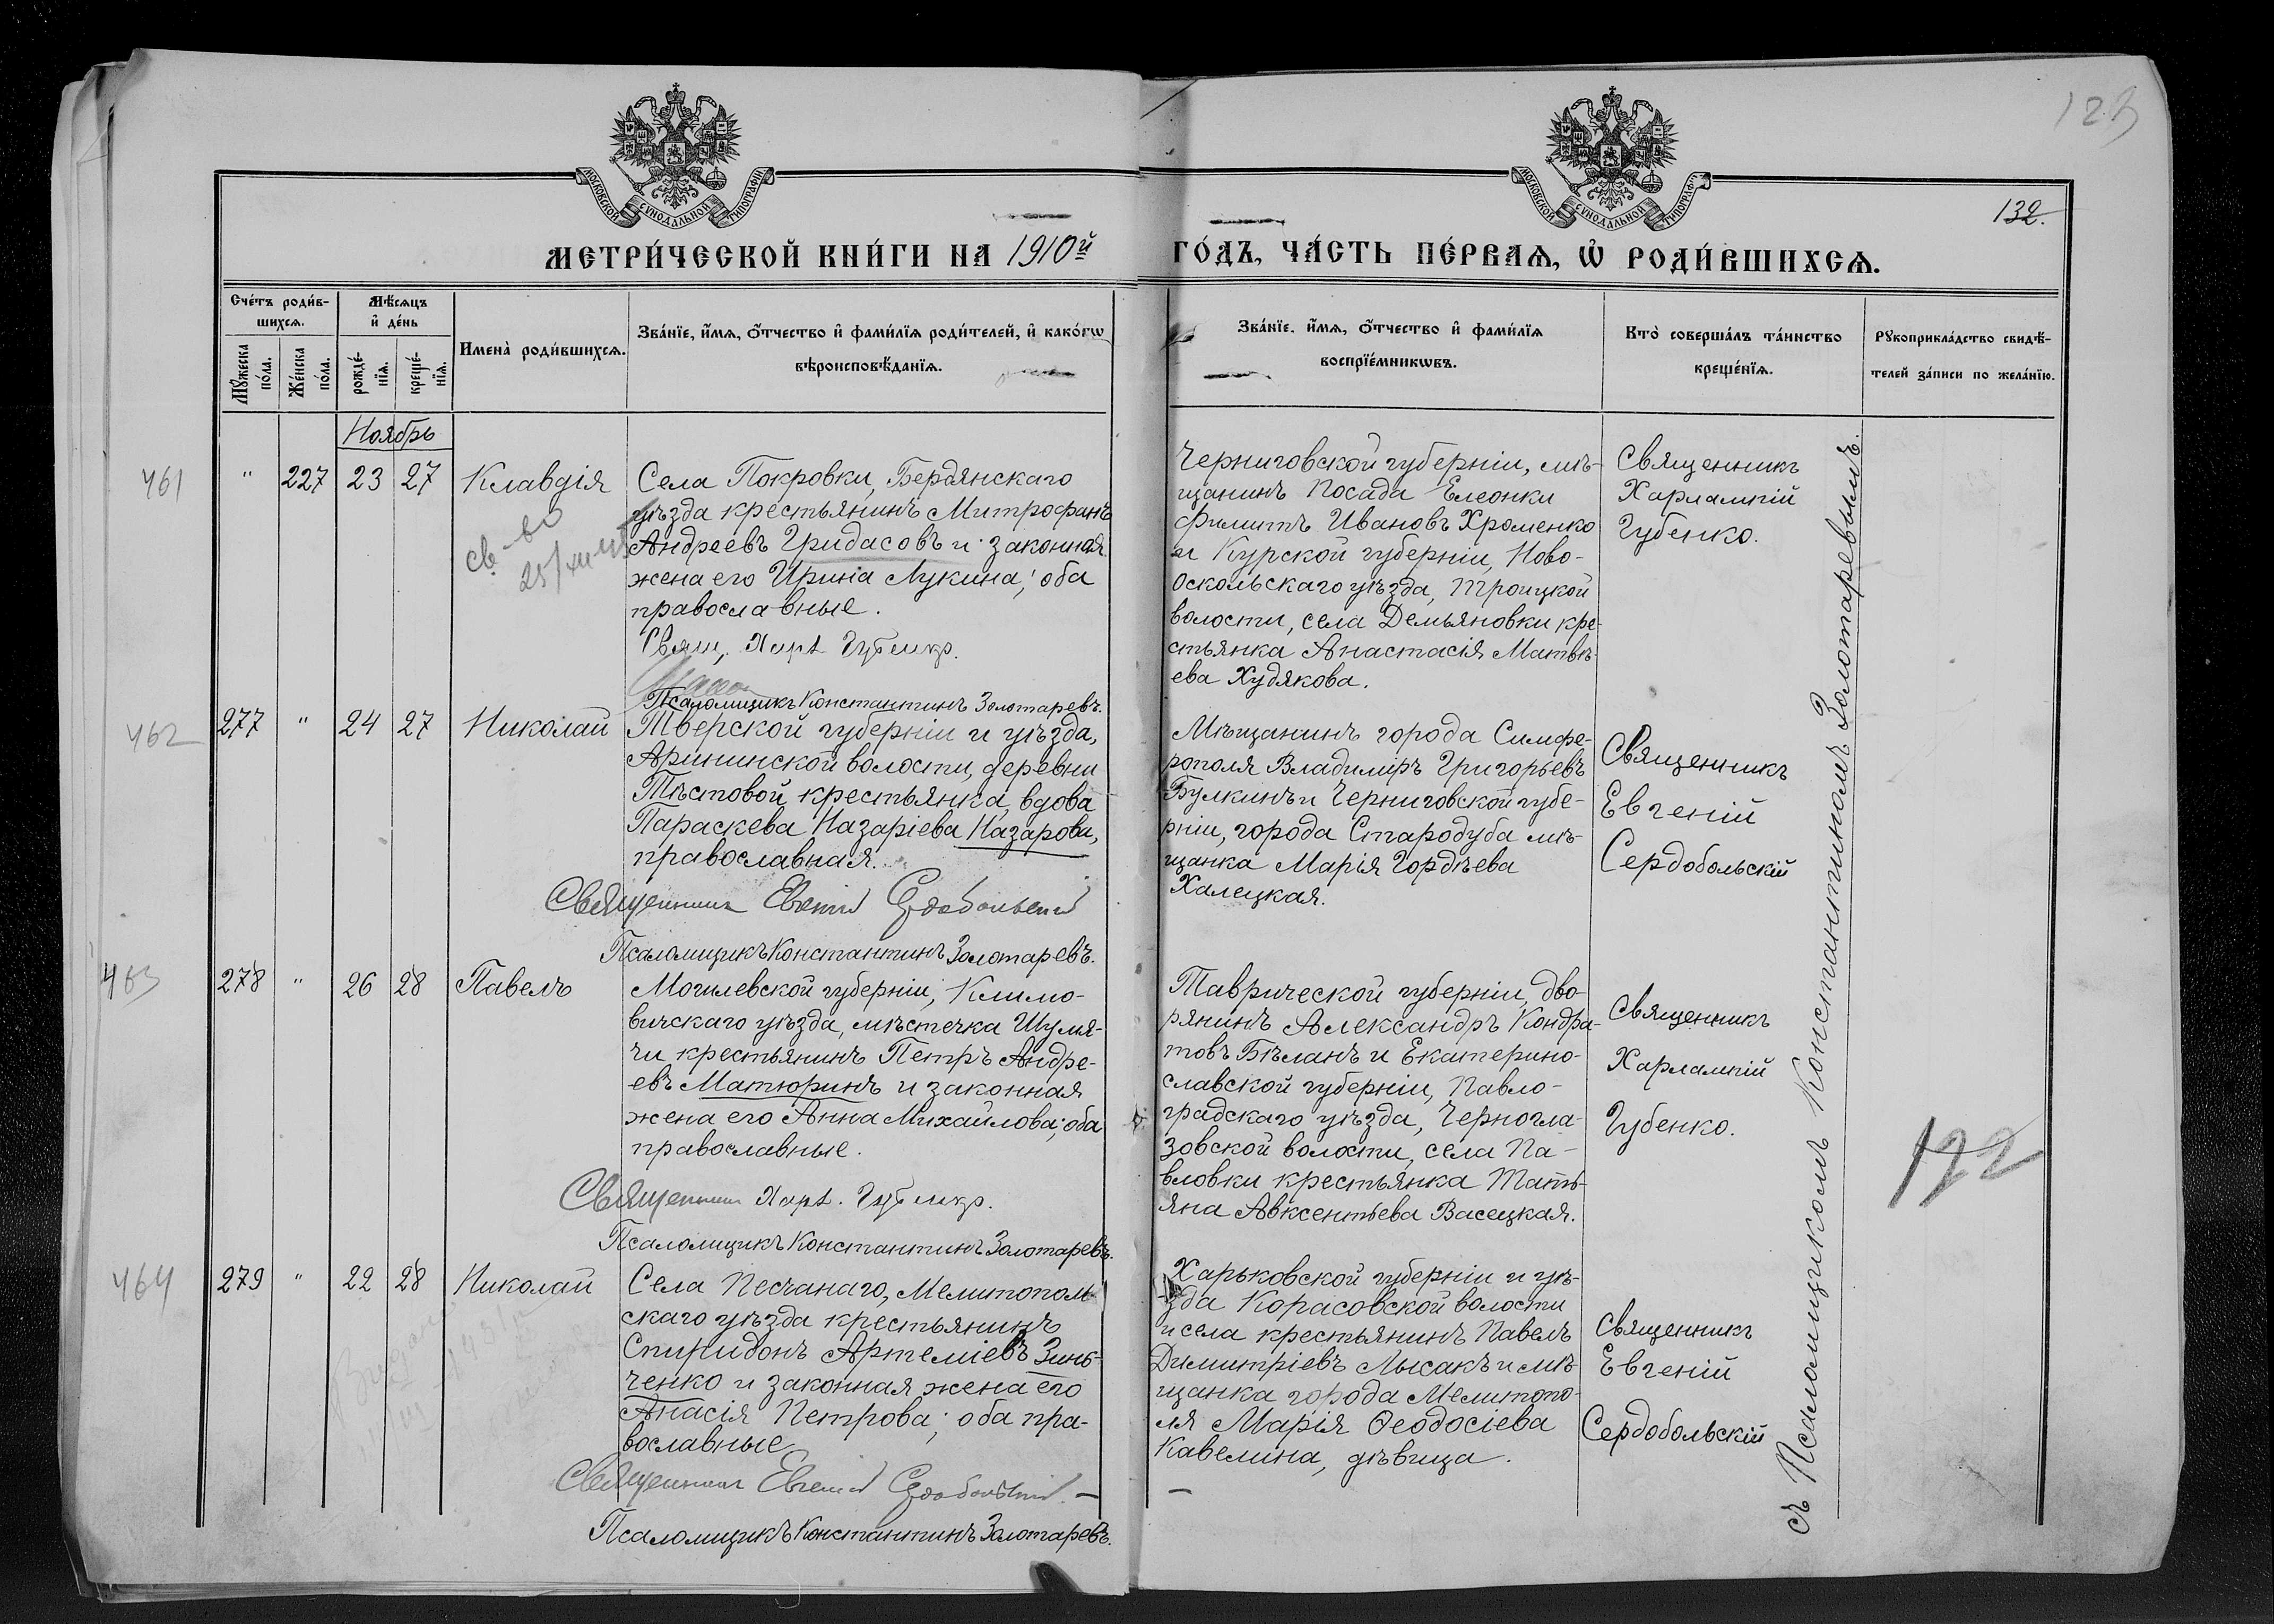 123
132.
МОСКОВСКОЙ СѴНОДАЛЬНОЙ ТИПОГРАФІИ
МОСКОВСКОЙ СѴНОДАЛЬНОЙ ТИПОГРАФІИ
МЕТРИ́ЧЕСКОЙ КНИ́ГИ НА 1910й ГО́ДЪ, ЧА́СТЬ ПЕ́РВАѦ, Ѡ҆ РОДИ́ВШИХСѦ.
Сче́тъ роди́в-
шихсѧ.
Мѣ́сѧцъ
и҆ де́нь
Мꙋ́жеска по́ла.
Же́нска по́ла.
рожде́-
нїѧ.
креще́-
нїѧ.
Имена̀ роди́вшихсѧ.
Зва́нїе, и҆́мѧ, ѻ҆́тчество и҆ фами́лїѧ роди́телей, и҆ како́гѡ
вѣроисповѣ́данїѧ.
Зва́нїе. и҆́мѧ, ѻ҆́тчество и҆ фами́лїѧ
воспрїе́мникѡвъ.
Кто̀ соверша́лъ та́инство
креще́нїѧ.
Рꙋкоприкла́дство свидѣ́-
телей за́писи по жела́нїю.
Ноябрь
461
" 227 23 27 Клавдія
св-во
Села Покровки, Бердянскаго
уѣзда крестьянинъ Митрофанъ
Андреевъ Гридасовъ и законная
жена его Ирина Лукина; оба
православные.
Свящ. Харл. Губенко.
Псаломщикъ Константинъ Золотаревъ.
Черниговской губерніи, мѣ-
щанинъ посада Елеонки
Филиппъ Ивановъ Хроменко
и Курской губерніи, Ново-
оскольскаго уѣзда, Троицкой
волости, села Демьяновки кре-
стьянка Анастасія Матвѣ-
ева Худякова.
Священникъ
Харлампій
Губенко.
462
277 " 24 27 Николай
Тверской губерніи и уѣзда,
Арининской волости, деревни
Тѣстовой, крестьянка, вдова
Параскева Назаріева Назарова,
православная.
Священникъ Евгеній Сердобольскій
Псаломщикъ Константинъ Золотаревъ.
Мѣщанинъ города Симфе-
рополя Владиміръ Григорьевъ
Булкинъ и Черниговской губе-
рніи, города Стародуба мѣ-
щанка Марія Гордѣева
Халецкая.
Священникъ
Евгеній
Сердобольскій
463
278 " 26 28 Павелъ
Могилевской губерніи, Климо-
вичскаго уѣзда, мѣстечка Шумя-
чи крестьянинъ Петръ Андре-
евъ Матюринъ и законная
жена его Анна Михайлова; оба
православные.
Священникъ Харл. Губенко.
Псаломщикъ Константинъ Золотаревъ.
Таврической губерніи, дво-
рянинъ Александръ Кондра-
товъ Бѣланъ и Екатерино-
славской губерніи, Павло-
градскаго уѣзда, Черногла-
зовской волости, села Па-
вловки крестьянка Тать-
яна Авксентьева Васецкая.
Священникъ
Харлампій
Губенко.
122
464
279 " 22 28 Николай
Села Песчанаго, Мелитополь-
скаго уѣзда крестьянинъ
Спиридонъ Артеміевъ Зинь-
ченко и законная жена его
Анасія Петрова; оба пра-
вославные.
Священникъ Евгеній Сердобольскій. —
Псаломщикъ Константинъ Золотаревъ.
Харьковской губерніи и уѣ-
зда Корасовской волости
и села крестьянинъ Павелъ
Димитріевъ Лысакъ и мѣ-
щанка города Мелитопо-
ля Марія Ѳеодосіева
Кавелина, дѣвица.
—
Священникъ
Евгеній
Сердобольскій
съ Псаломщикомъ Константиномъ Золотаревымъ.